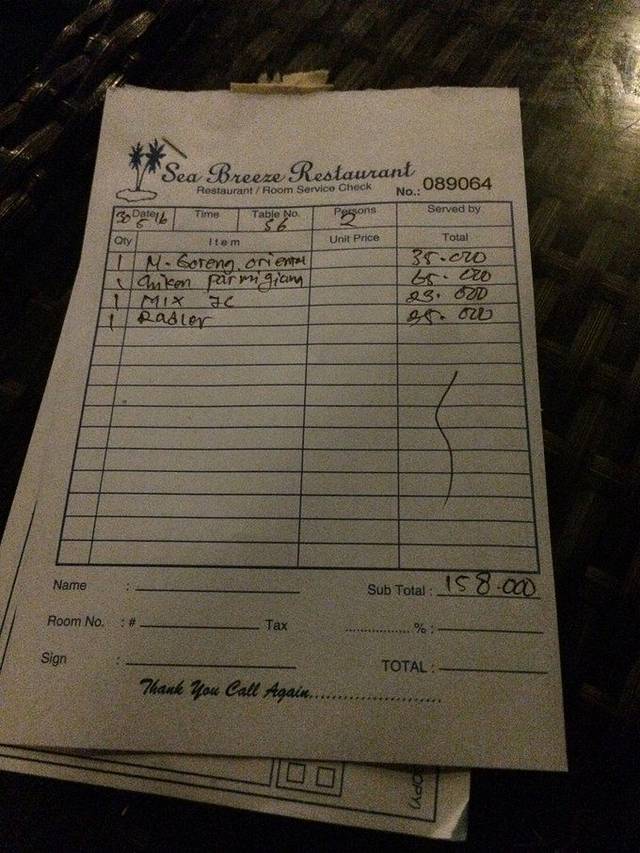 Sea Breeze Restaurant
Restaurant / Room Service Check
No.: 089064
Date 30 5 16 Time Table No. 56 Persons 2 Served by
Qty Item Unit Price Total
1 M. Goreng oriental 35.000
1 Chiken parmigiana 65.000
1 MIX JC 23.000
1 Radler 35.000
Name : Sub Total : 158.000
Room No. : # Tax ...............% :
Sign : TOTAL :
Thank You Call Again........................
OPY)